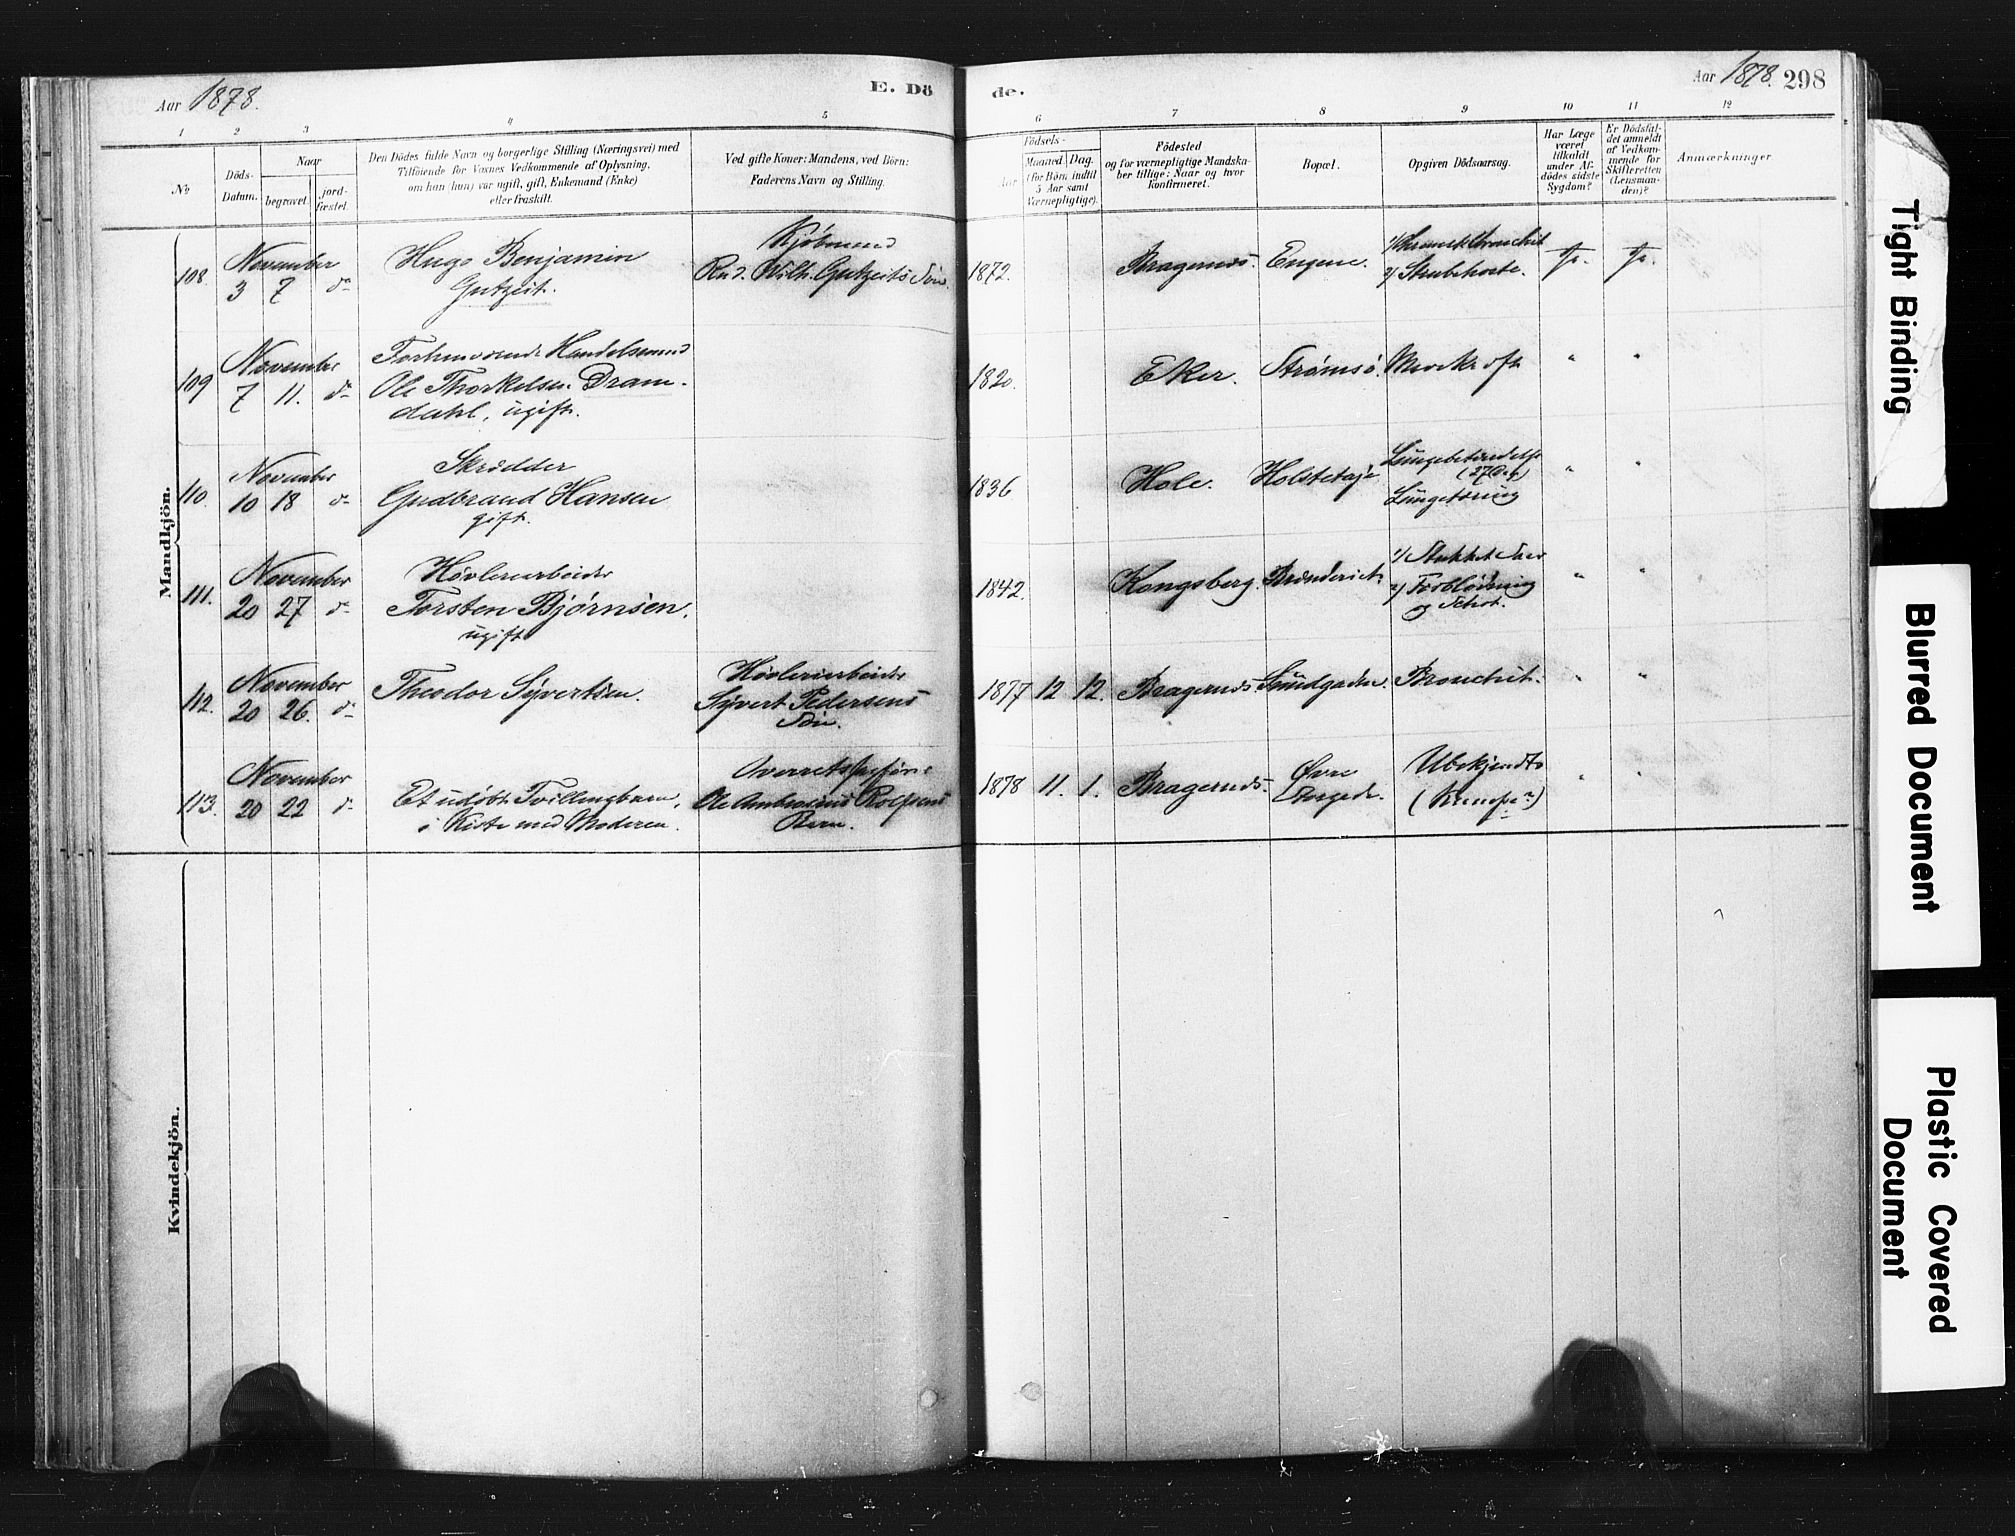 Aar 1878.
E. Dö
de.
Aar 1878. 298
1 2 3 4 5 6 7 8 9 10 11 12
No
Döds-
Datum.
Naar
begravet.
jord-
fæstet.
Den Dödes fulde Navn og borgerlige Stilling (Næringsvei) med
Tilföiende for Voxnes Vedkommende af Oplysning,
om han (hun) var ugift, gift, Enkemand (Enke)
eller fraskilt.
Ved gifte Koner: Mandens, ved Börn:
Faderens Navn og Stilling.
Födsels-
Aar
Maaned. Dag.
(for Börn indtil
5 Aar samt
Værnepligtige).
Födested
og for værnepligtige Mandska-
ber tillige: Naar og hvor
konfirmeret.
Bopæl.
Opgiven Dödsaarsag.
Har Læge
været
tilkaldt
under Af-
dödes sidste
Sygdom?
Er Dödsfal-
det anmeldt
af Vedkom-
mende for
Skifteretten
(Lensman-
den)?
Anmærkninger
Mandkjön.
108.
November
3 7 do
Hugo Benjamin
Gutzeit.
Kjöbmand
Rud. Wilh. Gutzeits Sön.
1872.
Bragernæs.
Engene.
2) Strubehoste.
Ja. Ja.
109
November
7 11. do
Forhenværende Handelsmand
Ole Thorkelsen Dram-
dahl, ugift.
1820.
Eker.
Strømsö.
" "
110.
November
10 18 do
Skrædder
Gudbrand Hansen
gift.
1836
Hole.
Lungebetændelse
Lungetæring
" "
111.
November
20 27 do
Høvleriarbeider
Torsten Bjørnsen.
ugift
1842.
Kongsberg.
2) Forblödning
" "
112.
November
20 26. do
Theodor Syvertsen.
Høvleriarbeider
Syvert Pedersens
Sön.
1877 12 12.
Bragernæs
Smidgaden.
Bronchit.
" "
113.
November
20 22 do
Et udöbt Tvillingbarn,
i Kiste med Moderen.
Overretssagförer
Ole Ambrosius Rolfsens
Barn.
1878 11. 1.
Bragernæs.
Øvre
Storgade.
Ubekjendt
" "
Kvindekjön.
Tight Binding
Blurred Document
Plastic Covered
Document